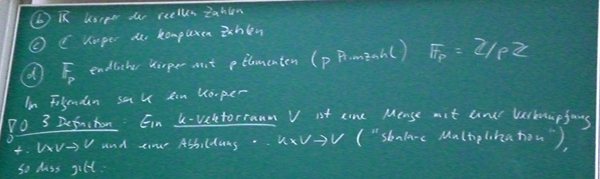 (b) ℝ Körper der reellen Zahlen
(c) ℂ Körper der komplexen Zahlen
(d) 𝔽_p endlicher Körper mit p Elementen (p Primzahl) 𝔽_p = ℤ/pℤ
Im Folgenden sei K ein Körper
0.3 Definition: Ein K-Vektorraum V ist eine Menge mit einer Verknüpfung
+: V×V→V und einer Abbildung ·: K×V→V ("skalare Multiplikation"),
so dass gilt: